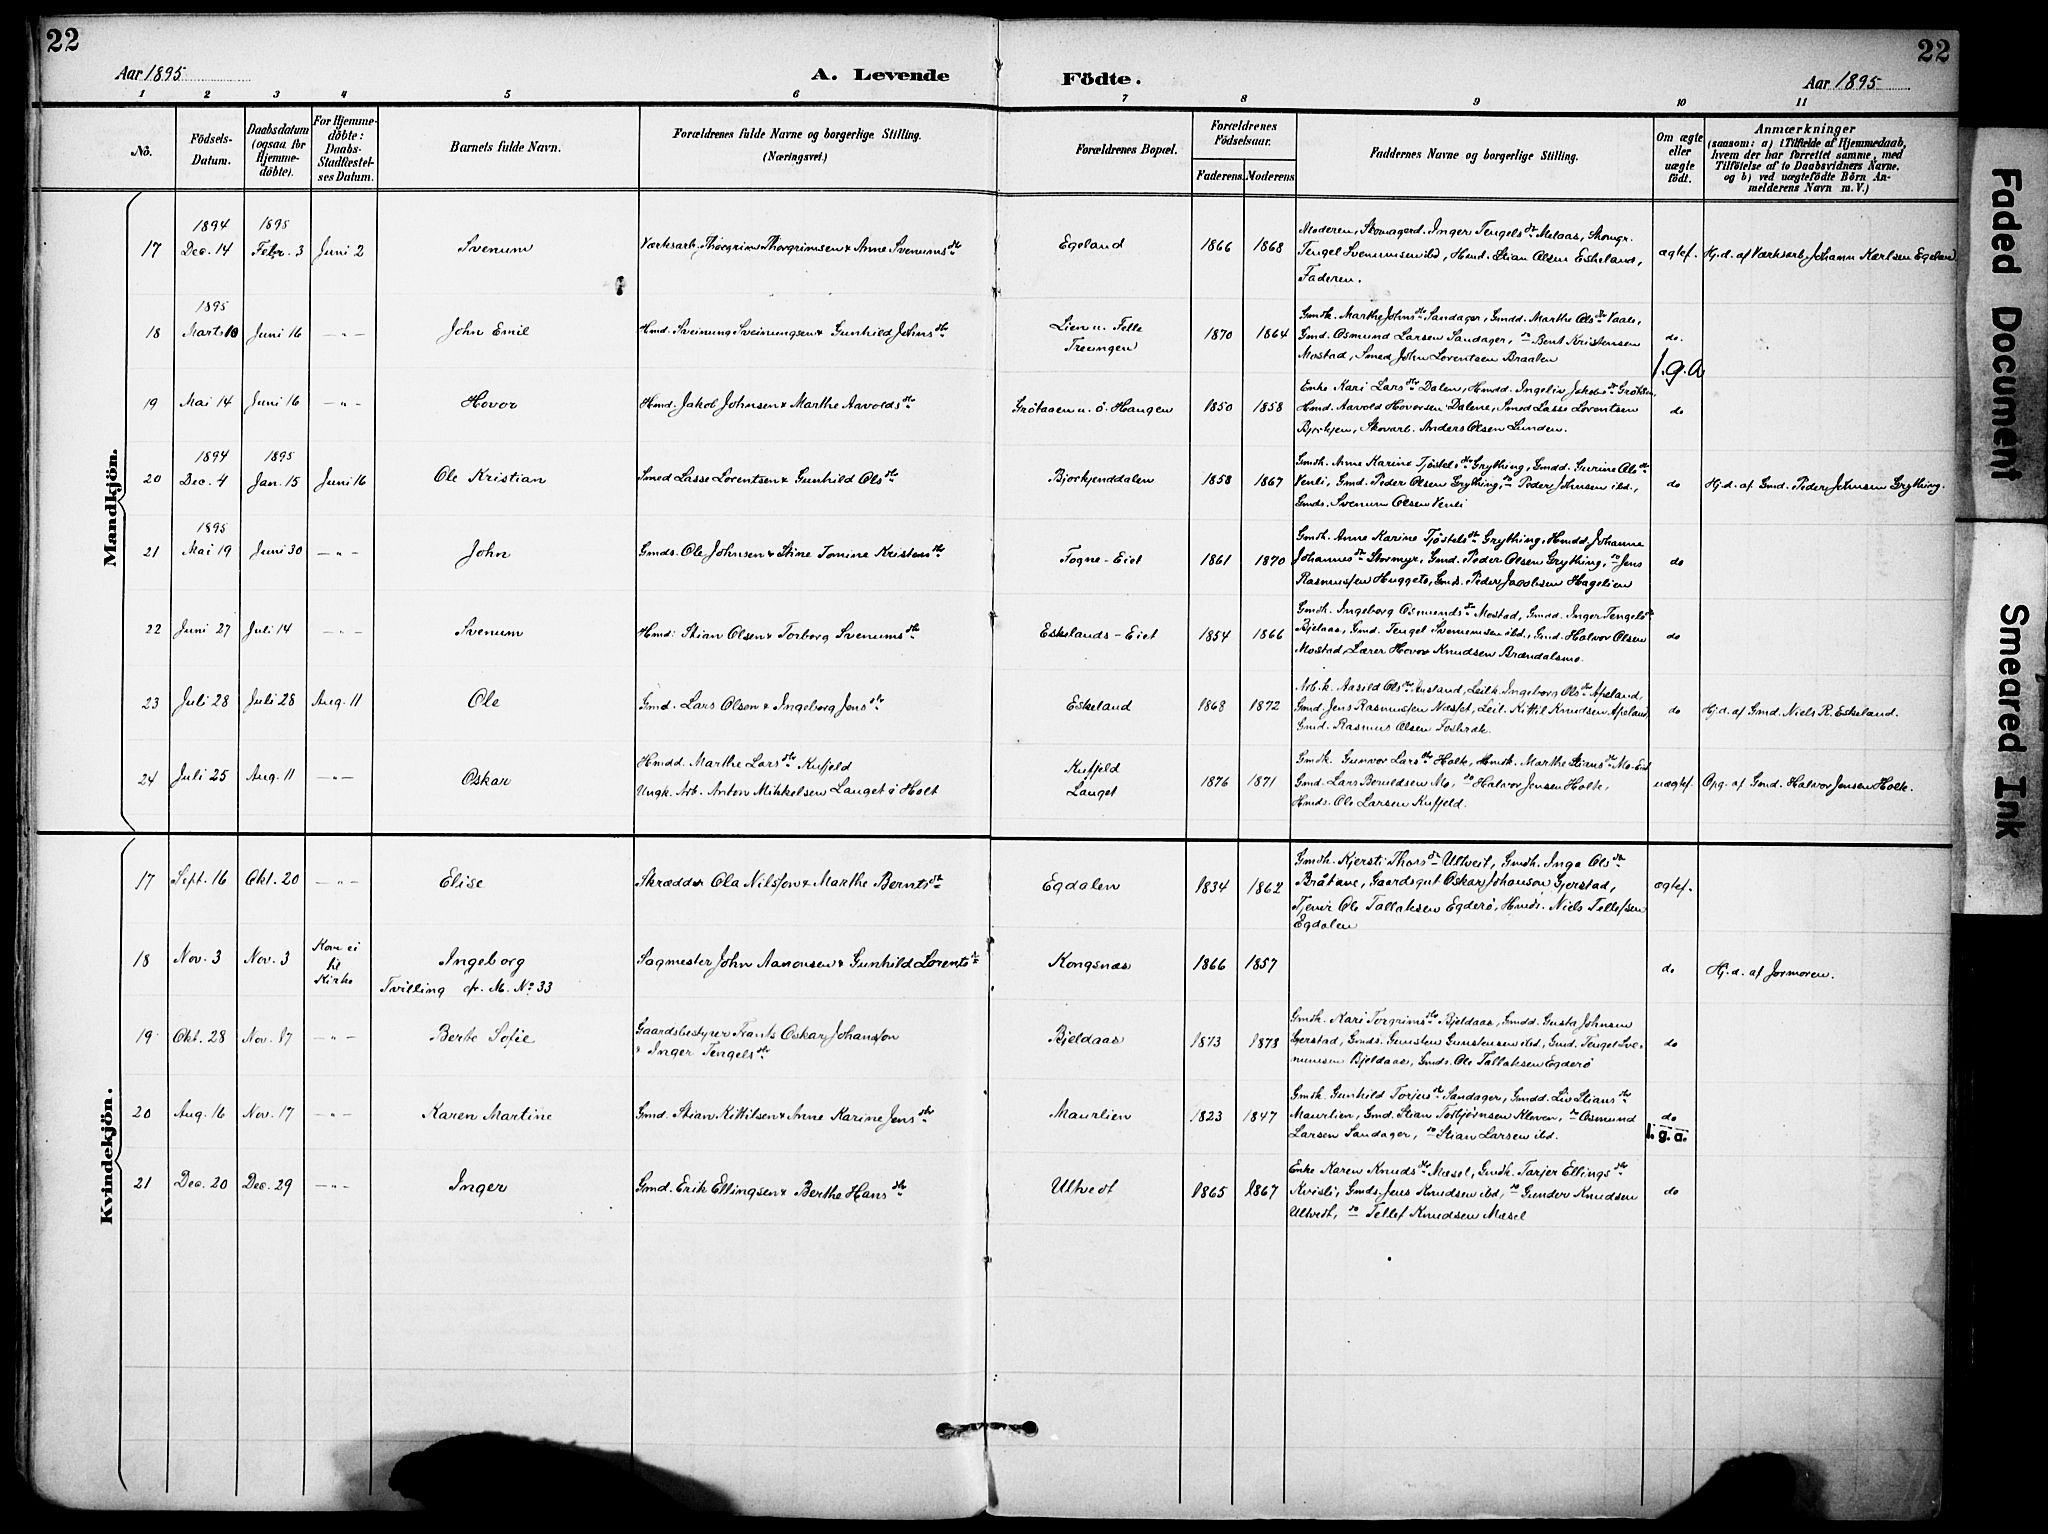 22
22
Aar 1895
A. Levende
Födte.
Aar 1895
1 2 3 4 5 6 7 8 9 10 11
No.
Födsels-
Datum.
Daabsdatum
(ogsaa for
Hjemme-
döbte).
For Hjemme-
döbte:
Daabs-
Stadfæstel-
ses Datum.
Barnets fulde Navn.
Forældrenes fulde Navne og borgerlige Stilling.
(Næringsvei.)
Forældrenes Bopæl.
Forældrenes
Födselsaar.
Faderens. Moderens
Faddernes Navne og borgerlige Stilling.
Om ægte
eller
uægte
födt.
Anmærkninger
(saasom: a) i Tilfælde af Hjemmedaab,
hvem der har forrettet samme, med
Tilföielse af to Daabsvidners Navne.
og b) ved uægtefödte Börn An-
melderens Navn m. V.)
Mandkjön.
17
1894
Dec. 14
1895
Febr. 3
Juni 2
Svenum
Værksarb. Thorgrim Thorgrimsen & Anne Svenums dtr
Egeland
1866
1868
Moderen, Skomagerd. Inger Tengels dtr Melaas, Skomgr.
Tengel Svenumsen ibd, Hmd. Stian Olsen Eskeland,
Faderen.
ægtef.
Hj. d. af Værksarb. Johann Karlsen Egeland
18
1895
Marts 10
Juni 16
— „ —
John Emil
Hmd. Sveinung Sveinungsen & Gunhild Johns dtr
Lien u. Felle
Treungen
1870
1864
Gmdk. Marthe Johns dtr Sandager, Gmdd. Marthe Ols dtr Vaale,
Gmd. Osmund Larsen Sandager, do Bent Kristensen
Mostad, Smed John Lorentsen Braalen
do.
f. g. a
19
Mai 14
Juni 16
— „ —
Hovor
Hmd. Jakob Johnsen & Marthe Aavolds dtr
Grötaaen u. ö. Haugen
1850
1858
Enke Kari Lars dtr Dalen, Hmdd. Ingelin Jakobs dtr
Hmd. Aavold Hoversen Dalene, Smed Lasse Lorentsen
Skovarb. Anders Olsen Lunden.
do
20
1894
Dec. 4
1895
Jan. 15
Juni 16
Ole Kristian
Smed Lasse Lorentsen & Gunhild Ols dtr
Bjorkjenddalen
1858
1867
Gmdk. Anne Karine Tjöstels dtr Grything, Gmdd. Gurine Ols dtr
Venli, Gmd. Peder Olsen Grything, do Peder Johnsen ibd.,
Gmds. Svenum Olsen Venli
do
Hj. d. af Gmd. Peder Johnsen Grything.
21
1895
Mai 19
Juni 30
— „ —
John
Gmds. Ole Johnsen & Stine Tomine Kristens dtr
Fogne-Eiet
1861
1870
Gmdk. Anne Karine Tjöstels dtr Grything, Hmdd. Johanne
Johannes dtr Stormyr, Gmd. Peder Olsen Grything, do Jens
Rasmussen Huggeto, Gmd. Peder Jacobsen Hagelien
do
22
Juni 27
Juli 14
— „ —
Svenum
Hmd. Stian Olsen & Torborg Svenums dtr
Eskelands-Eiet
1854
1866
Gmdk. Ingeborg Osmunds dtr Mostad, Gmdd. Inger Tengels dtr
Bjelaas, Gmd. Tengel Svenumsen ibd., Gmd. Halvor Olsen
Mostad, Lærer Hovor Knudsen Brændalsmo.
do
23
Juli 28
Juli 28
Aug. 11
Ole
Gmd. Lars Olsen & Ingeborg Jens dtr
Eskeland
1868
1872
Arb. k. Aasild Ols dtr Leilk. Ingeborg Ols dtr Apeland,
Gmd. Jens Rasmussen Næstet, Leil. Kittil Knudsen Apeland,
Gmd. Rasmus Olsen Fosbræk.
do
Hj. d. af Gmd. Niels R. Eskeland.
24
Juli 25
Aug. 11
— „ —
Oskar
Hmdd. Marthe Lars dtr Kufjeld
Ungk. Arb. Anton Mikkelsen Lauget i Holt
Kufjeld
Lauget
1876
1871
Gmdk. Gunvor Lars dtr Holte, Hmdk. Marthe Stians dtr Mo-Eiet
Gmd. Lars Bouldsen Mo, do Halvor Jensen Holte,
Hmds. Ole Larsen Kufjeld.
uægtef.
Opg. af Gmd. Halvor Jensen Holte.
Kvindekjön.
17
Sept. 16
Okt. 20
— „ —
Elise
Skrædder Ola Nilsson & Marthe Bernts dtr
Egdalen
1834
1862
Gmdk. Kjersti Thors dtr Ultveit, Gmdk. Inga Ols dtr
Bråtane, Gaardsgut Oskar Johanson Gjerstad,
Tjener Ole Tallaksen Egderö, Hmds. Niels Tellefsen
Egdalen
ægtef.
18
Nov. 3
Nov. 3
Kom ei
til
Kirke
Ingeborg
Tvilling cfr. M. No 33
Sagmester John Aanonsen & Gunhild Lorents dtr
Kongsnæs
1866
1857
do
Hj. d. af Jormoren.
19
Okt. 28
Nov. 17
— „ —
Berte Sofie
Gaardsbestyrer Frants Oskar Johansson
& Inger Tengels dtr
Bjeldaas
1873
1873
Gmdk. Kari Torgrims dtr Bjeldaas, Gmdd. Gusta Johnsen
Gjerstad, Gmds. Gunsten Gunstensen ibd, Gmd. Tengel Sve-
numsen Bjeldaas, Gmds. Ole Tallaksen Egderö
do
20
Aug. 16
Nov. 17
— „ —
Karen Martine
Gmd. Stian Kittilsen & Anne Karine Jens dtr
Maurlien
1823
1847
Gmdk. Gunhild Torjus dtr Sandager, Gmdd. Liv Stians dtr
Maurlien, Gmd. Stian Torbjørnsen Kleven, do Osmund
Larsen Sandager, do Stian Larsen ibd.
do
f. g. a.
21
Dec. 20
Dec. 29
— „ —
Inger
Gmd. Erik Ellingsen & Berthe Hans dtr
Ultvedt
1865
1867
Enke Karen Knuds dtr Mæsel, Gmdk. Tarjer Ellings dtr
Kvisli, Gmds. Jens Knudsen ibd, do Gunder Knudsen
Ultvedt, do Tellef Knudsen Mæsel
do
Faded Document
Smeared Ink